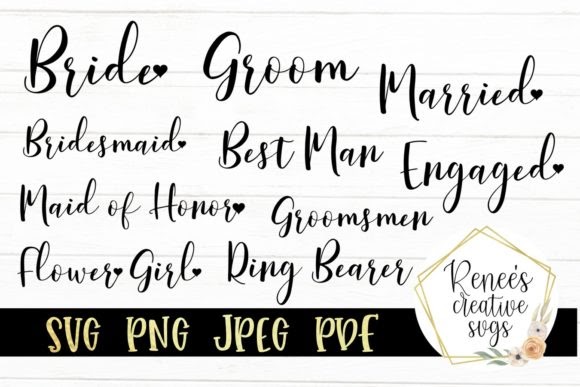 Bride Groom
Married
Bridesmaid Best Man
Engaged
Maid of Honor Groomsmen
Flower Girl Ring Bearer
SVG PNG JPEG PDF
Reneé's
creative
svgs